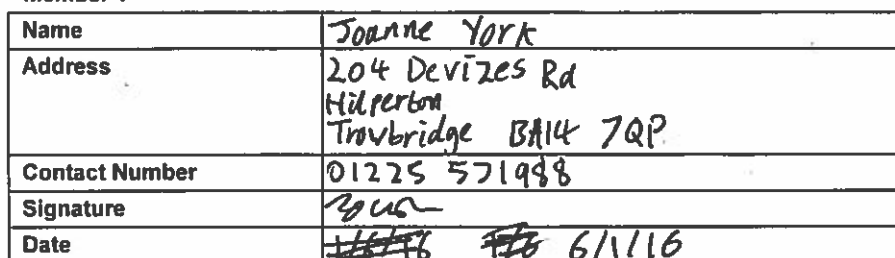 Name Joanne York
Address 204 Devizes Rd
Hilperton
Trowbridge BA14 7QP
Contact Number 01225 571988
Signature
Date 6/1/16